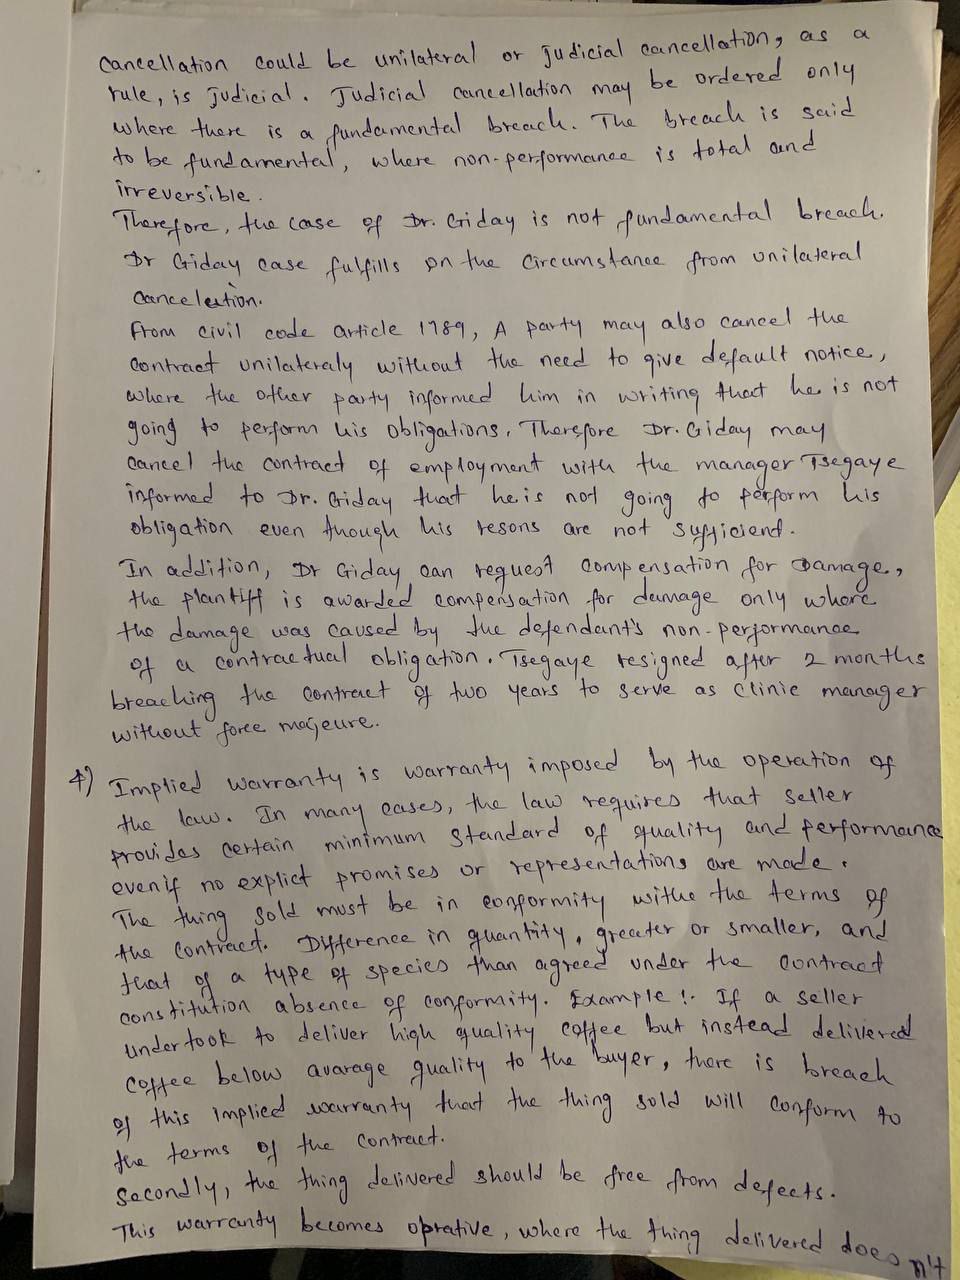 cancellation could be unilateral or judicial cancellation, as a
rule, is judicial. Judicial cancellation may be ordered only
where there is a fundamental breach. The breach is said
to be fundamental, where non-performance is total and
irreversible.
Therefore, the case of Dr. Giday is not fundamental breach.
Dr Giday case fulfills on the circumstance from unilateral
cancelation.
From civil code article 1789, A party may also cancel the
contract unilateraly without the need to give default notice,
where the other party informed him in writing that he is not
going to perform his obligations. Therefore Dr. Giday may
cancel the contract of employment with the manager Tsegaye
informed to Dr. Giday that he is not going to perform his
obligation even though his resons are not sufficiend.
In addition, Dr Giday can request compensation for Damage,
the plantiff is awarded compensation for damage only where
the damage was caused by the defendant's non-performance
of a contractual obligation. Tsegaye resigned after 2 months
breaching the contract of two years to serve as clinic manager
without force majeure.
4) Implied warranty is warranty imposed by the operation of
the law. In many cases, the law requires that seller
provides certain minimum standard of quality and performance
even if no explict promises or representations are made.
The thing sold must be in conformity withe the terms of
the contract. Difference in quantity, greater or smaller, and
that of a type of species than agreed under the contract
constitution absence of conformity. Example:- If a seller
undertook to deliver high quality coffee but instead delivered
coffee below avarage quality to the buyer, there is breach
of this implied warranty that the thing sold will conform to
the terms of the contract.
Secondly, the thing delivered should be free from defects.
This warranty becomes oprative, where the thing delivered doesn't